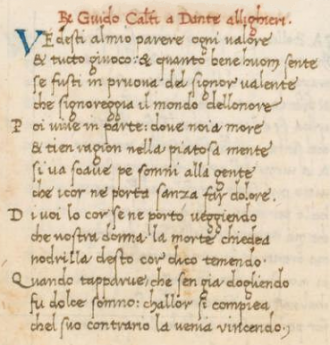 Re Guido Calti a Dante allighieri.
VEdesti al mio parere ogni valore
& tucto giuoco: & quanto bene huom sente
se fusti in pruova del signor valente
che signoreggia il mondo dellonore
Poi vive in parte: dove noia more
& tien ragion nella piatosa mente
si va soave pe somni alla gente
che icor ne porta sanza far dolore.
Di voi lo cor se ne porto veggiendo
che vostra donna la morte chiedea
nodrilla desto cor dico temendo.
Quando tapparve, che sen gia dogliendo
fu dolce somno: challor si compiea
chel suo contrario la venia vincendo,